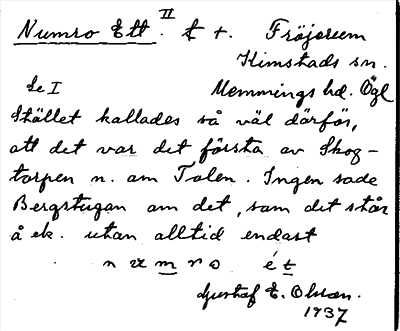 Numro Ett. II t +. Fröjerum
Kimstads sn.
Se I Memmings hd. Ögl
Stället kallades så väl därför,
att det var det första av Skog-
torpen n. om Tolen. Ingen sade
Bergstugan om det, som det står
å ek. utan alltid endast
n u m r o é t
Gustaf E. Olsson.
1937